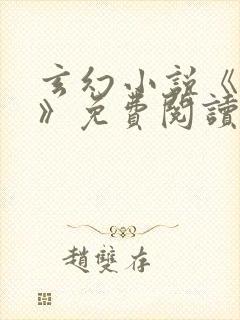 玄幻小說《
》免費閱讀
趙雙存